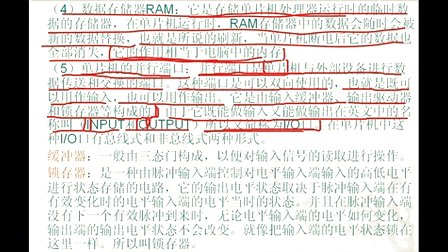 （4）数据存储器RAM：它是单片机处理器运行时的临时数
据的存储器，在单片机运行时，RAM存储器中的数据会随时会被
新的数据替换，也就是所说的刷新，当单片机断电后它的数据也
全部消失，它的作用相当于电脑中的内存
（5）单片机的并行端口：并行端口是单片机与外部设备进行数
据传送和交换的端口。这种端口是可以双向使用的，也就是既可
以用作输入，也可以用作输出。它是由输入缓冲器、输出驱动器
和锁存器等构成的。由于它既能做输入又能做输出在英文中的名
称叫（INPUT和OUTPUT），所以又简称为I/O口。在单片机中这
种I/O口有总线式和非总线式两种形式。
缓冲器：一般由三态门构成，以便对输入信号的读取进行操作。
锁存器：是一种由脉冲输入端控制对电平输入端输入的高低电平
进行状态存储的电路，它的输出电平状态取决于脉冲输入端在有
有效变化时的电平输入端的电平当时的状态。并且在脉冲输入端
没有下一个有效脉冲到来时，无论电平输入端的电平如何变化，
输出端的输出电平状态不会改变。就像把输入端的电平状态锁在
这里一样。所以叫锁存器。